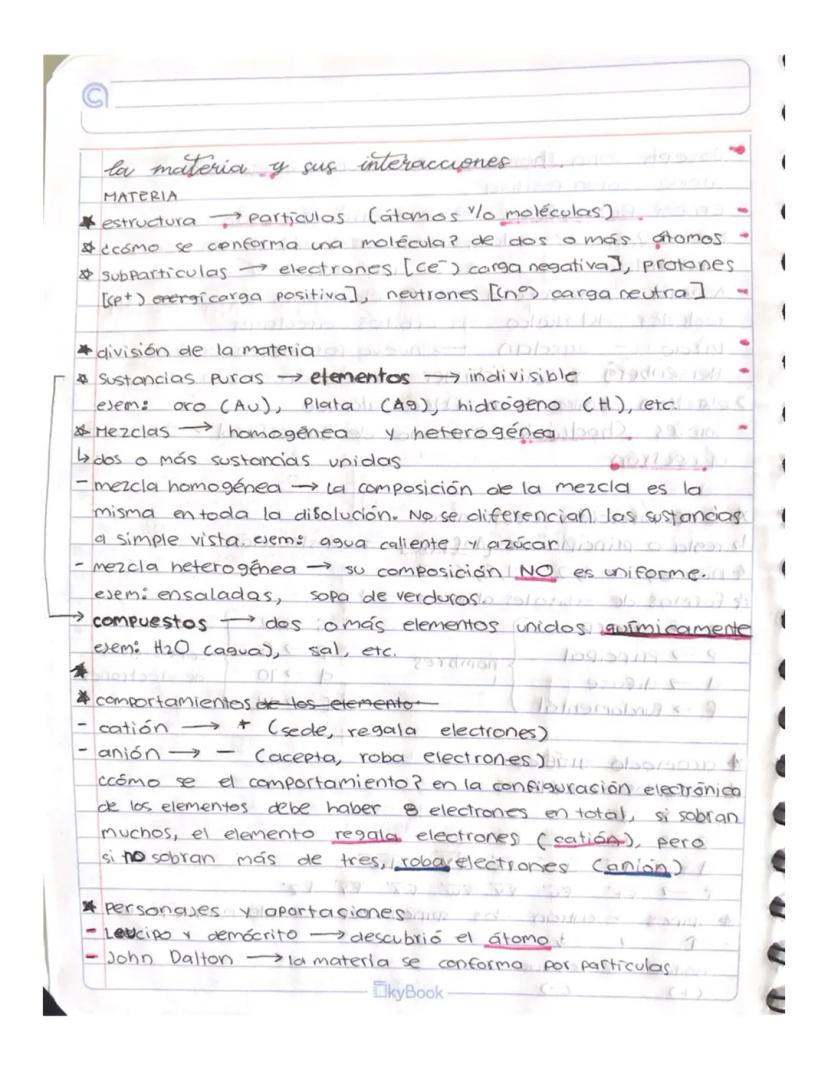 la materia y sus interacciones
MATERIA
* estructura → particulas (átomos y/o moléculas)
* ¿cómo se conforma una molécula? de dos o más átomos
* subparticulas → electrones [(e⁻) carga negativa], protones
[(p+) energi carga positiva], neutrones [(n°) carga neutra]
* división de la materia
* sustancias puras → elementos → indivisible
ejem: oro (Au), Plata (Ag), hidrógeno (H), etc.
* Mezclas → homogénea y heterogénea
↳ dos o más sustancias unidas
- mezcla homogénea → La composición de la mezcla es la
misma en toda la disolución. No se diferencian las sustancias
a simple vista ejem: agua caliente y azúcar
- mezcla heterogénea → su composición NO es uniforme.
ejem: ensaladas, sopa de verduras
→ compuestos → dos o más elementos unidos químicamente
ejem: H2O (agua), sal, etc.
*
* comportamientos de los elemento
- catión → + (sede, regala electrones)
- anión → - (acepta, roba electrones)
¿cómo se el comportamiento? en la configuración electrónica
de los elementos debe haber 8 electrones en total, si sobran
muchos, el elemento regala electrones (catión), pero
si no sobran más de tres, roba electrones (anión)
* Personajes y aportaciones
- Leucipo y demócrito → descubrió el átomo
- John Dalton → la materia se conforma por particulas
SkyBook